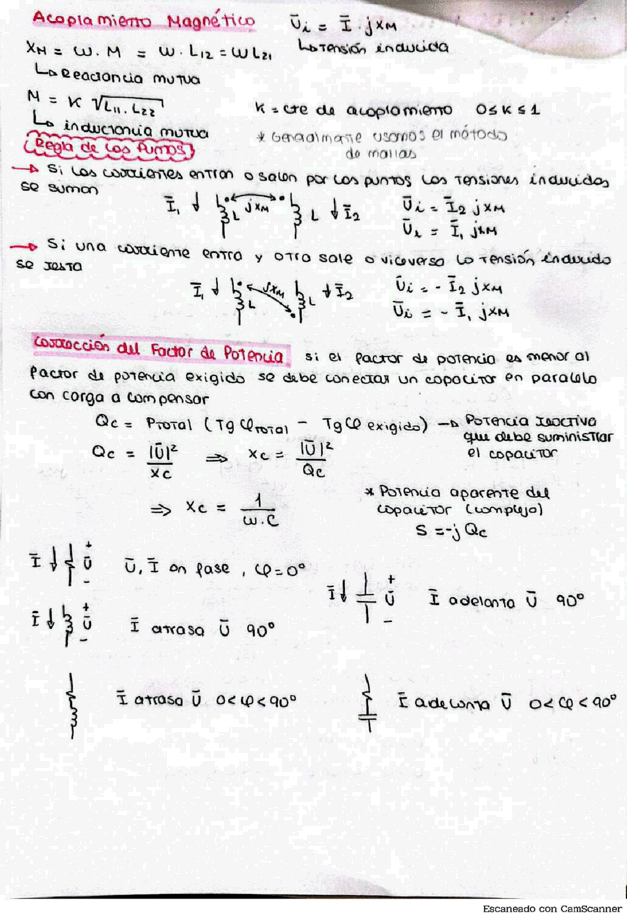 Acoplamiento Magnético
Ūi = Ī · jXM
↳ Tensión inducida
XM = ω . M = ω . L12 = ω L21
↳ Reactancia mutua
M = K √L11 . L22
K = cte de acoplamiento 0 ≤ K ≤ 1
↳ inductancia mutua
* Generalmente usamos el método
de mallas
Regla de los Puntos
→ Si las corrientes entran o salen por los puntos las tensiones inducidas
se suman
Ī1 ↓ L jXM L ↓ Ī2
Ūi = Ī2 jXM
Ūi = Ī1 jXM
→ Si una corriente entra y otra sale o viceversa la tensión inducida
se resta
Ī1 ↓ L jXM L ↓ Ī2
Ūi = - Ī2 jXM
Ūi = - Ī1 jXM
Corrección del Factor de Potencia si el factor de potencia es menor al
factor de potencia exigido se debe conectar un capacitor en paralelo
con carga a compensar
Qc = PTOTAL (Tg φTOTAL - Tg φ exigido) → Potencia reactiva
que debe suministrar
el capacitor
Qc = |Ū|²/Xc ⇒ Xc = |Ū|²/Qc
⇒ Xc = 1/ω.C
* Potencia aparente del
capacitor (complejo)
S = -j Qc
Ī ↓ + Ū - Ū, Ī en fase, φ = 0°
Ī ↓ + Ū - Ī adelanta Ū 90°
Ī ↓ + Ū - Ī atrasa Ū 90°
Ī atrasa Ū 0 < φ < 90°
Ī adelanta Ū 0 < φ < 90°
Escaneado con CamScanner